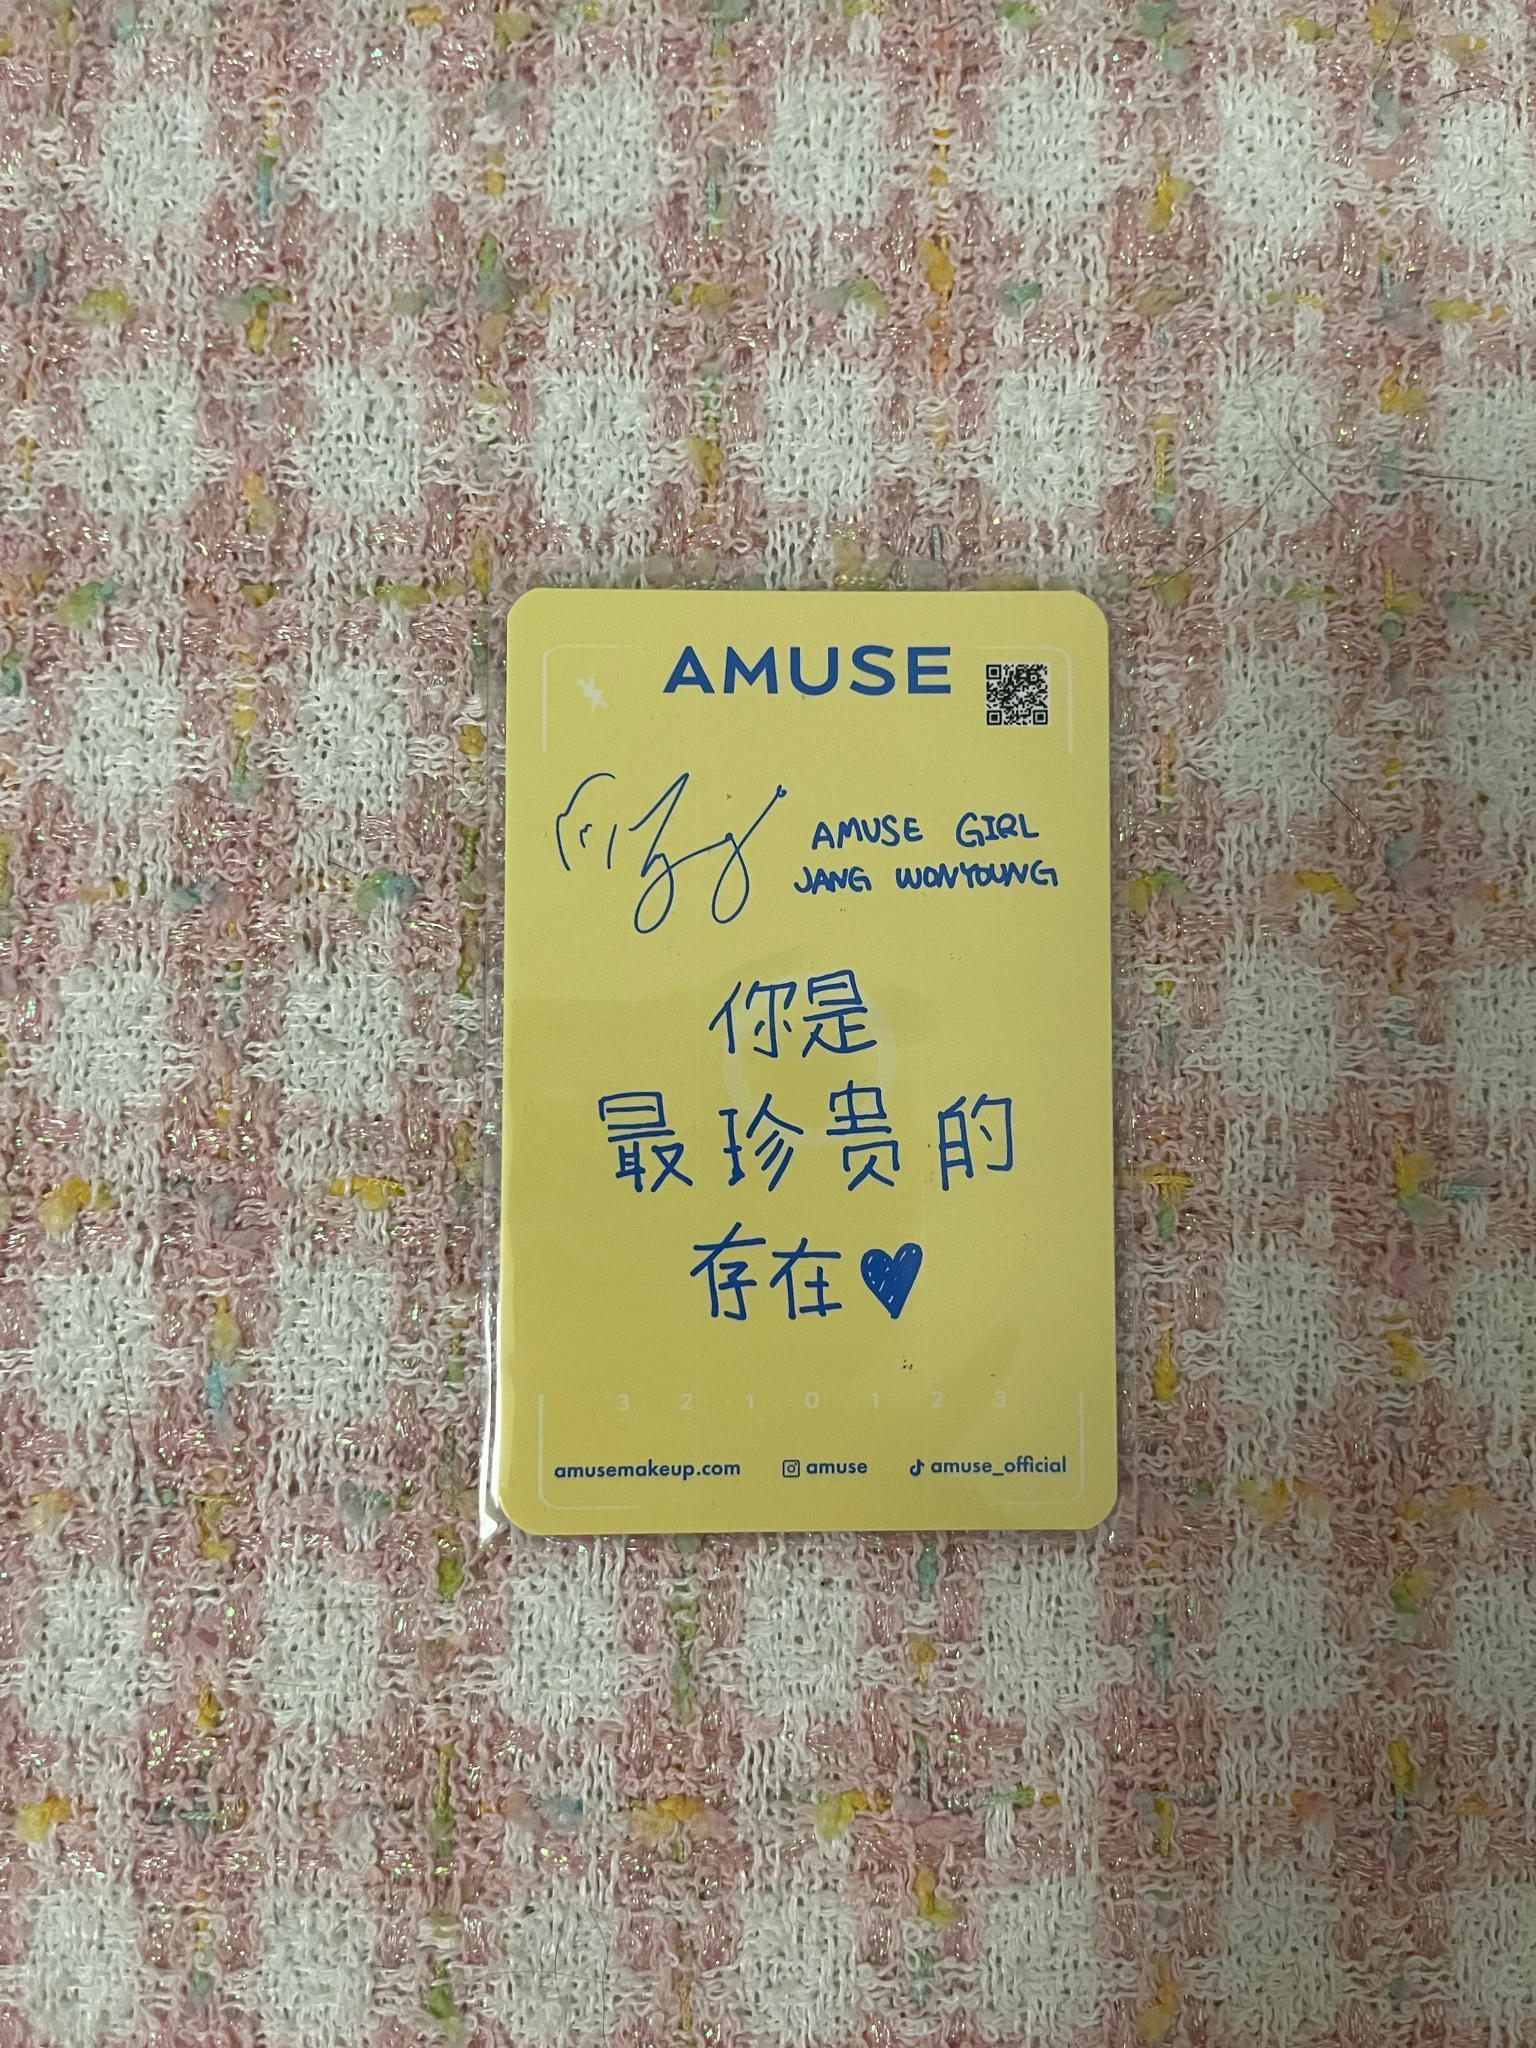 AMUSE
AMUSE GIRL
JANG WONYOUNG
你是
最珍贵的
存在
3 2 1 0 1 2 3
amusemakeup.com amuse amuse_official